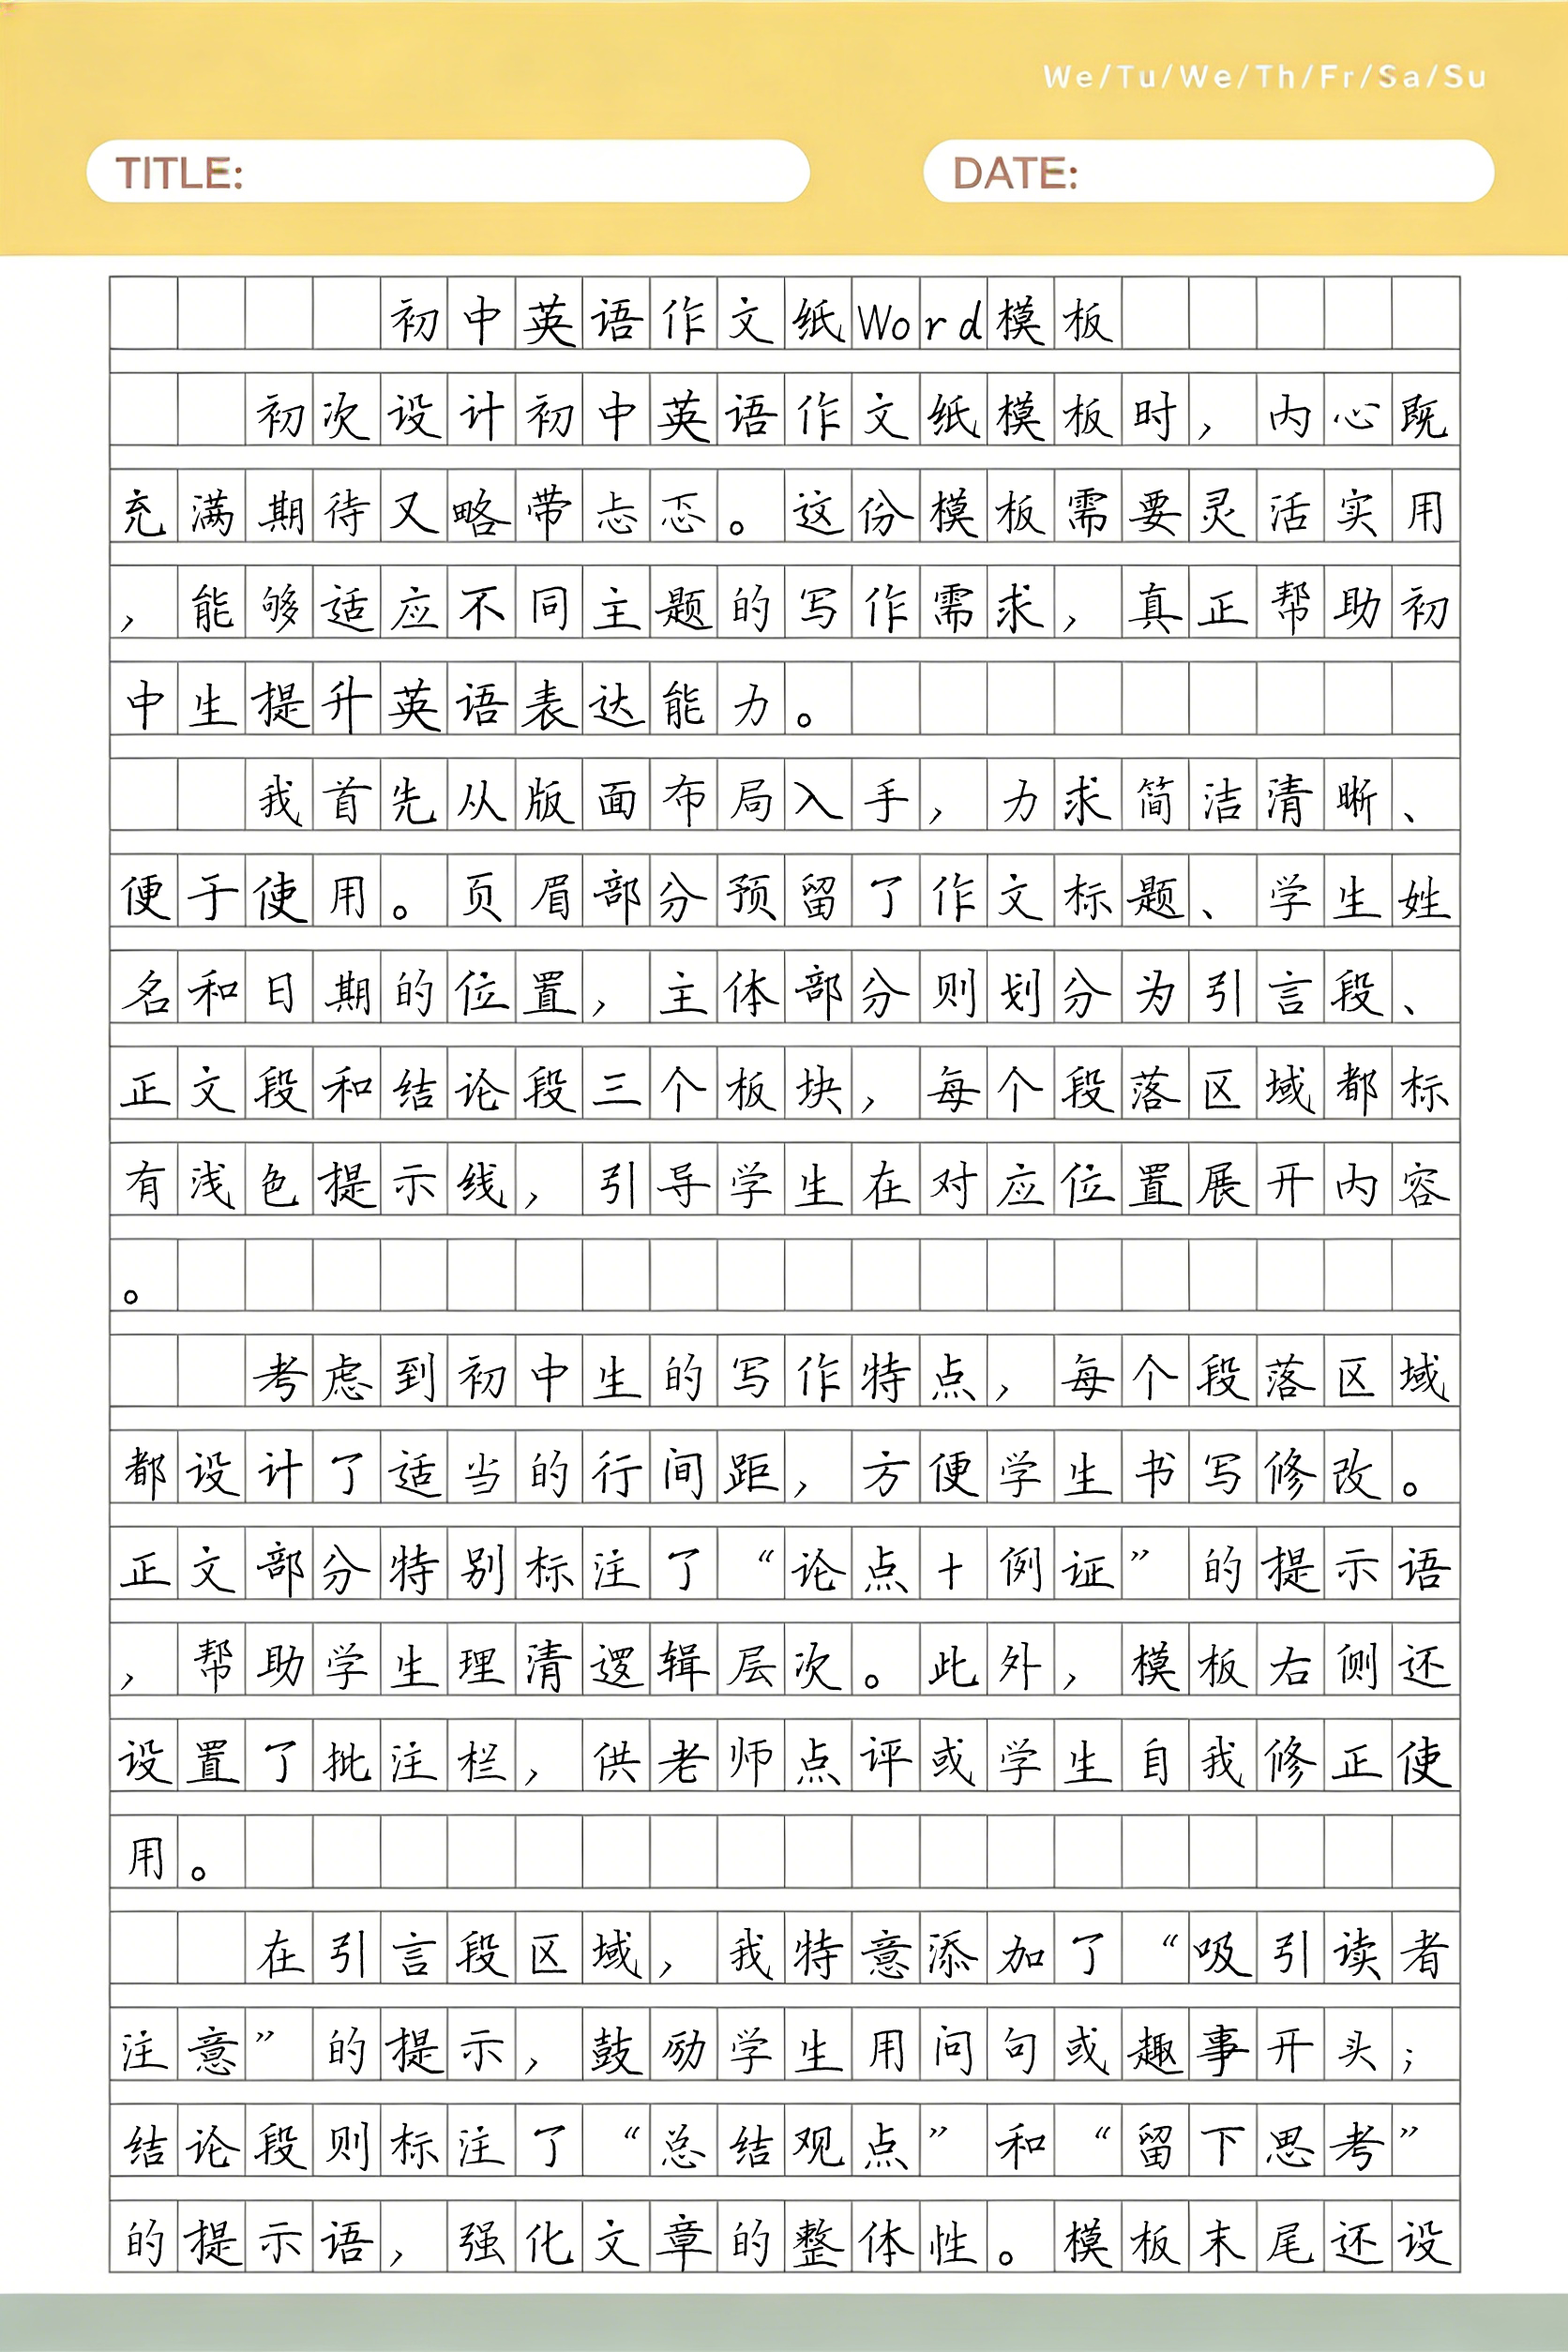 We/Tu/We/Th/Fr/Sa/Su
TITLE: DATE:
初中英语作文纸Word模板
初次设计初中英语作文纸模板时，内心既
充满期待又略带忐忑。这份模板需要灵活实用
，能够适应不同主题的写作需求，真正帮助初
中生提升英语表达能力。
我首先从版面布局入手，力求简洁清晰、
便于使用。页眉部分预留了作文标题、学生姓
名和日期的位置，主体部分则划分为引言段、
正文段和结论段三个板块，每个段落区域都标
有浅色提示线，引导学生在对应位置展开内容
。
考虑到初中生的写作特点，每个段落区域
都设计了适当的行间距，方便学生书写修改。
正文部分特别标注了“论点+例证”的提示语
，帮助学生理清逻辑层次。此外，模板右侧还
设置了批注栏，供老师点评或学生自我修正使
用。
在引言段区域，我特意添加了“吸引读者
注意”的提示，鼓励学生用问句或趣事开头；
结论段则标注了“总结观点”和“留下思考”
的提示语，强化文章的整体性。模板末尾还设